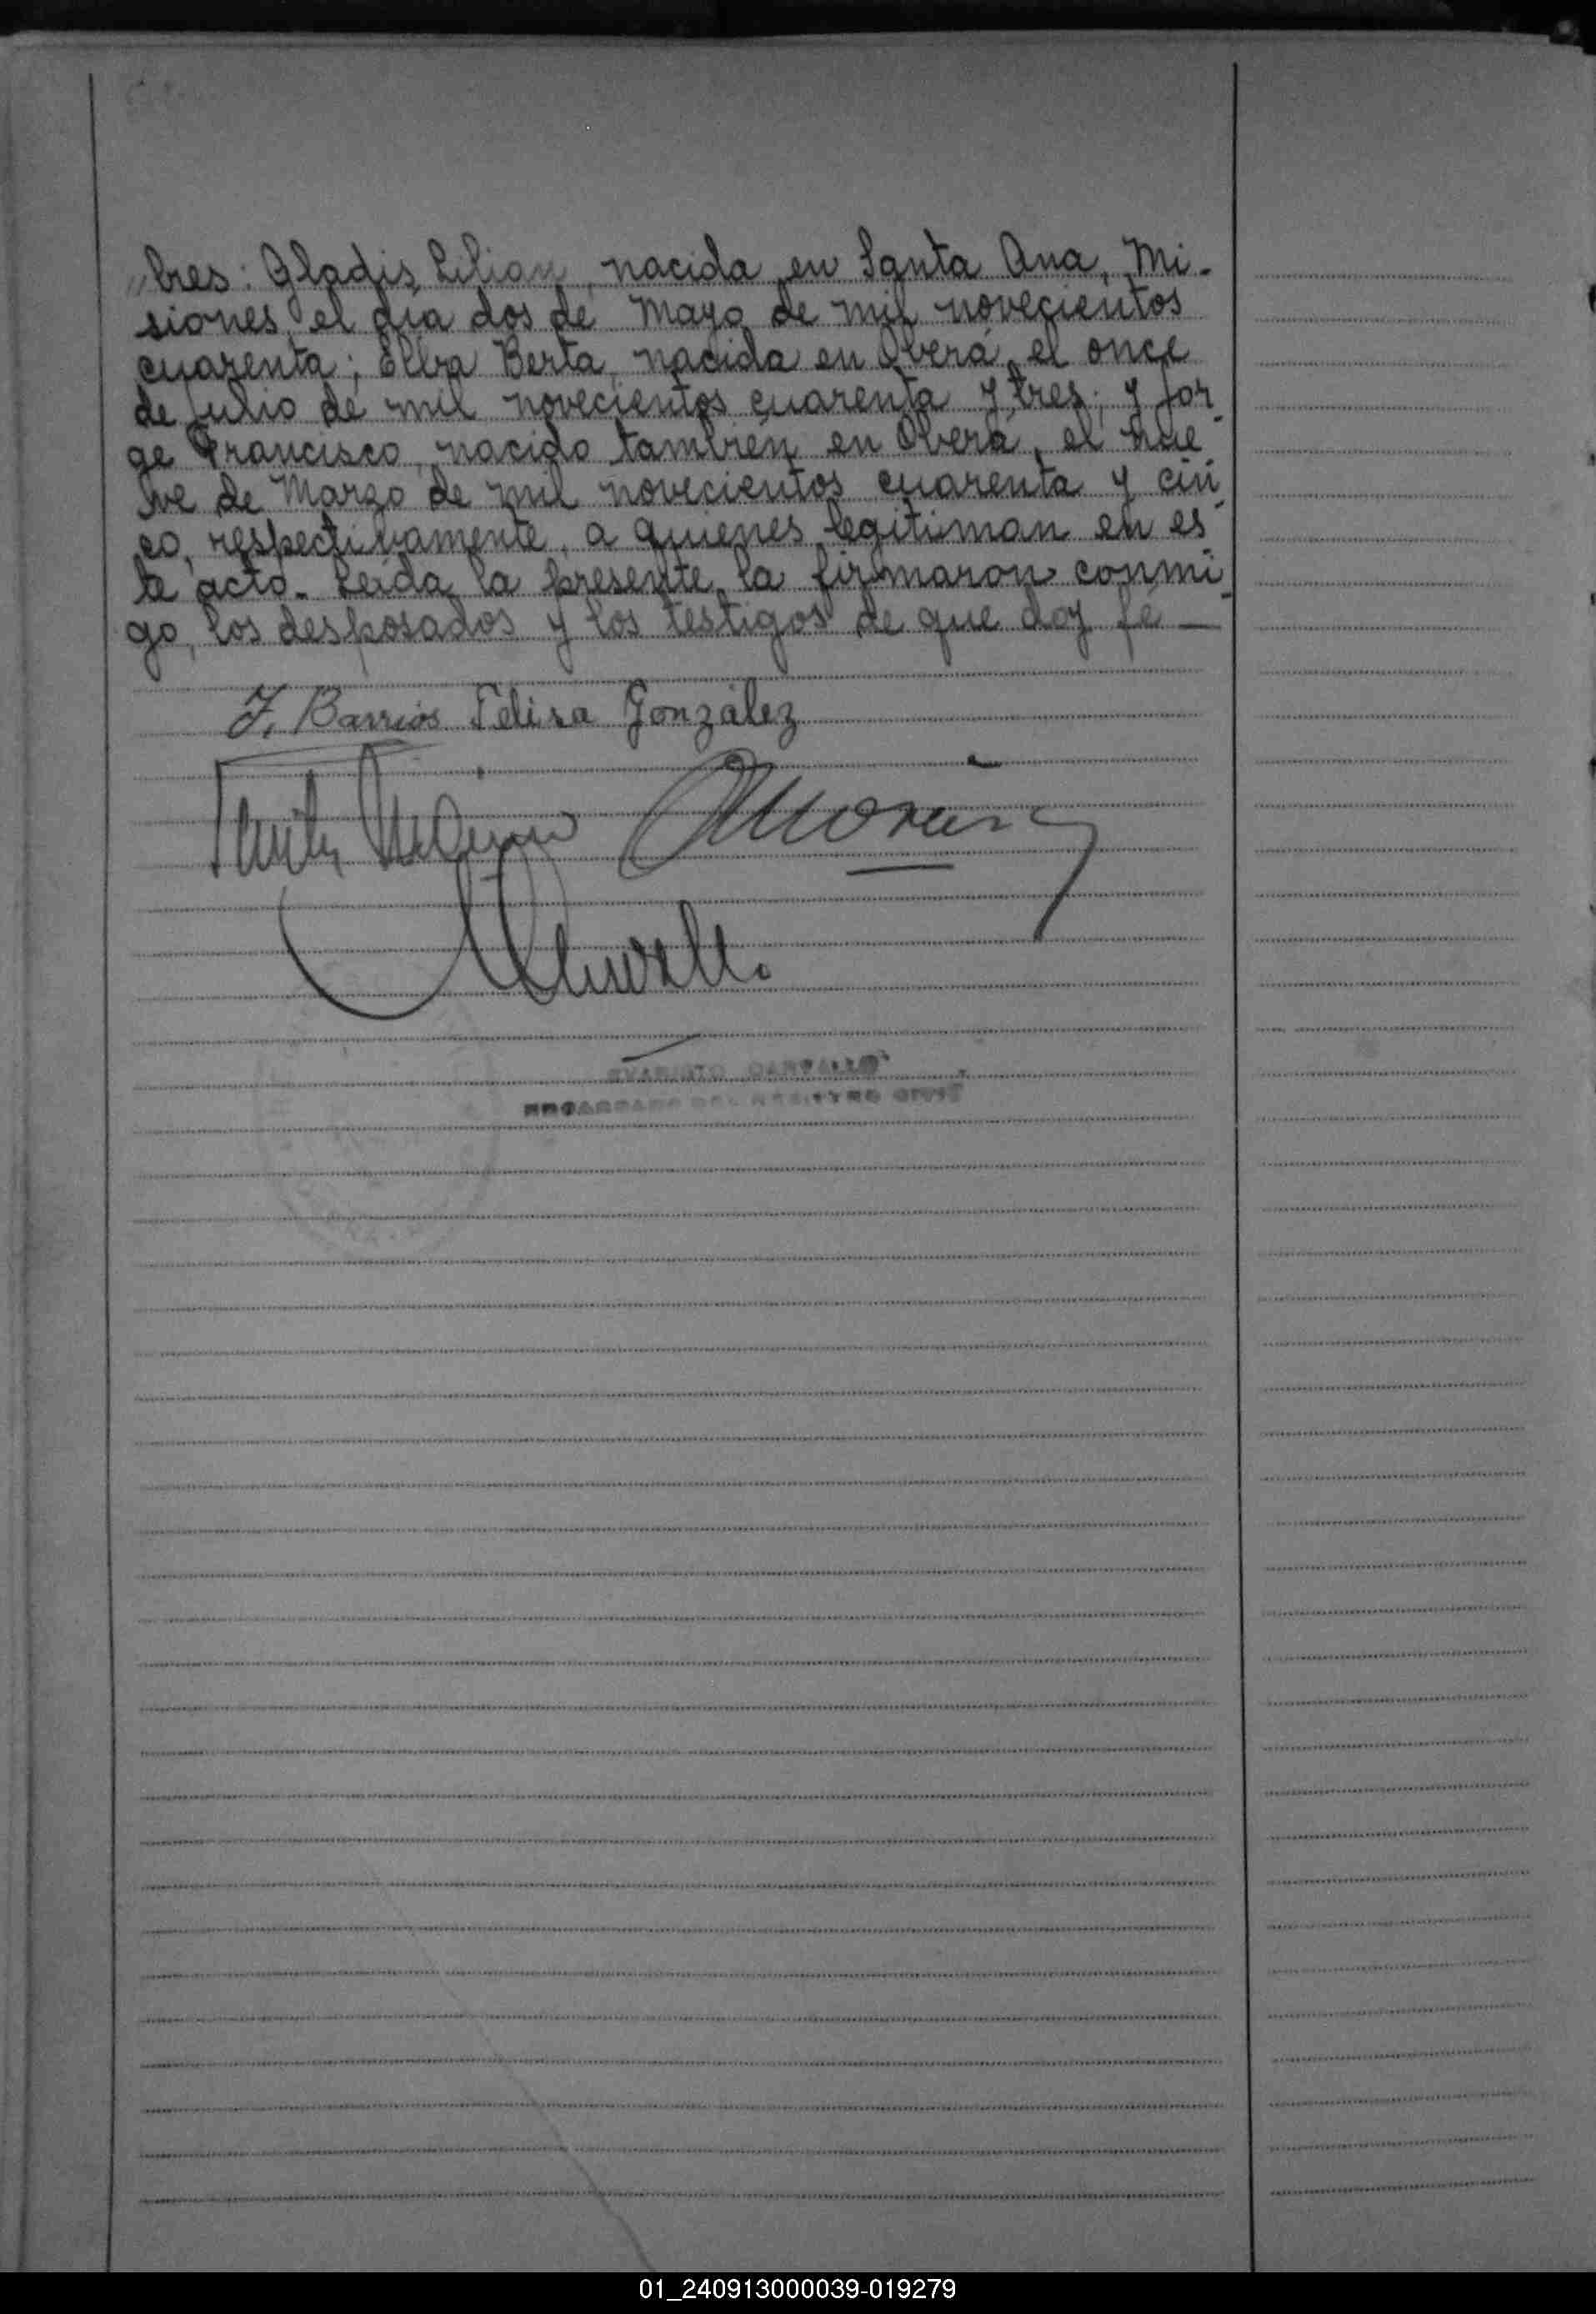 bres: Gladis Lilian, nacida en Santa Ana, Mi-
siones, el día dos de Mayo de mil novecientos
cuarenta; Elba Berta, nacida en Oberá, el once
de Julio de mil novecientos cuarenta y tres; y Jor-
ge Francisco, nacido también en Oberá, el nue-
ve de Marzo de mil novecientos cuarenta y cin-
co, respectivamente, a quienes legitiman en es-
te acto. Leída la presente, la firmaron conmi-
go, los desposados y los testigos de que doy fé —
F. Barrios Felisa González
CARVALLO
ENCARGADO DEL REGISTRO CIVIL
01_240913000039-019279